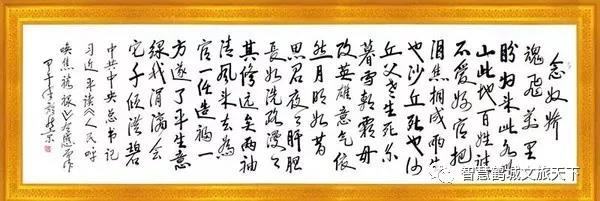 念奴娇
魂飛萬里
盼归来此水此
山此地百姓谁
不爱好官把
泪焦桐成雨生
也沙丘死也沙
丘父老生死系
暮雪朝霜毋
改英雄意气依
然月明如昔
思君夜夜肝胆
长如洗路漫漫
其修远矣两袖
清风来去為
官一任造福一
方遂了平生意
绿我涓滴会
它千顷澄碧
中共中央总书记
习近平读人民呼
唤焦裕禄一文感而作
甲午年
智慧鹤城文旅天下